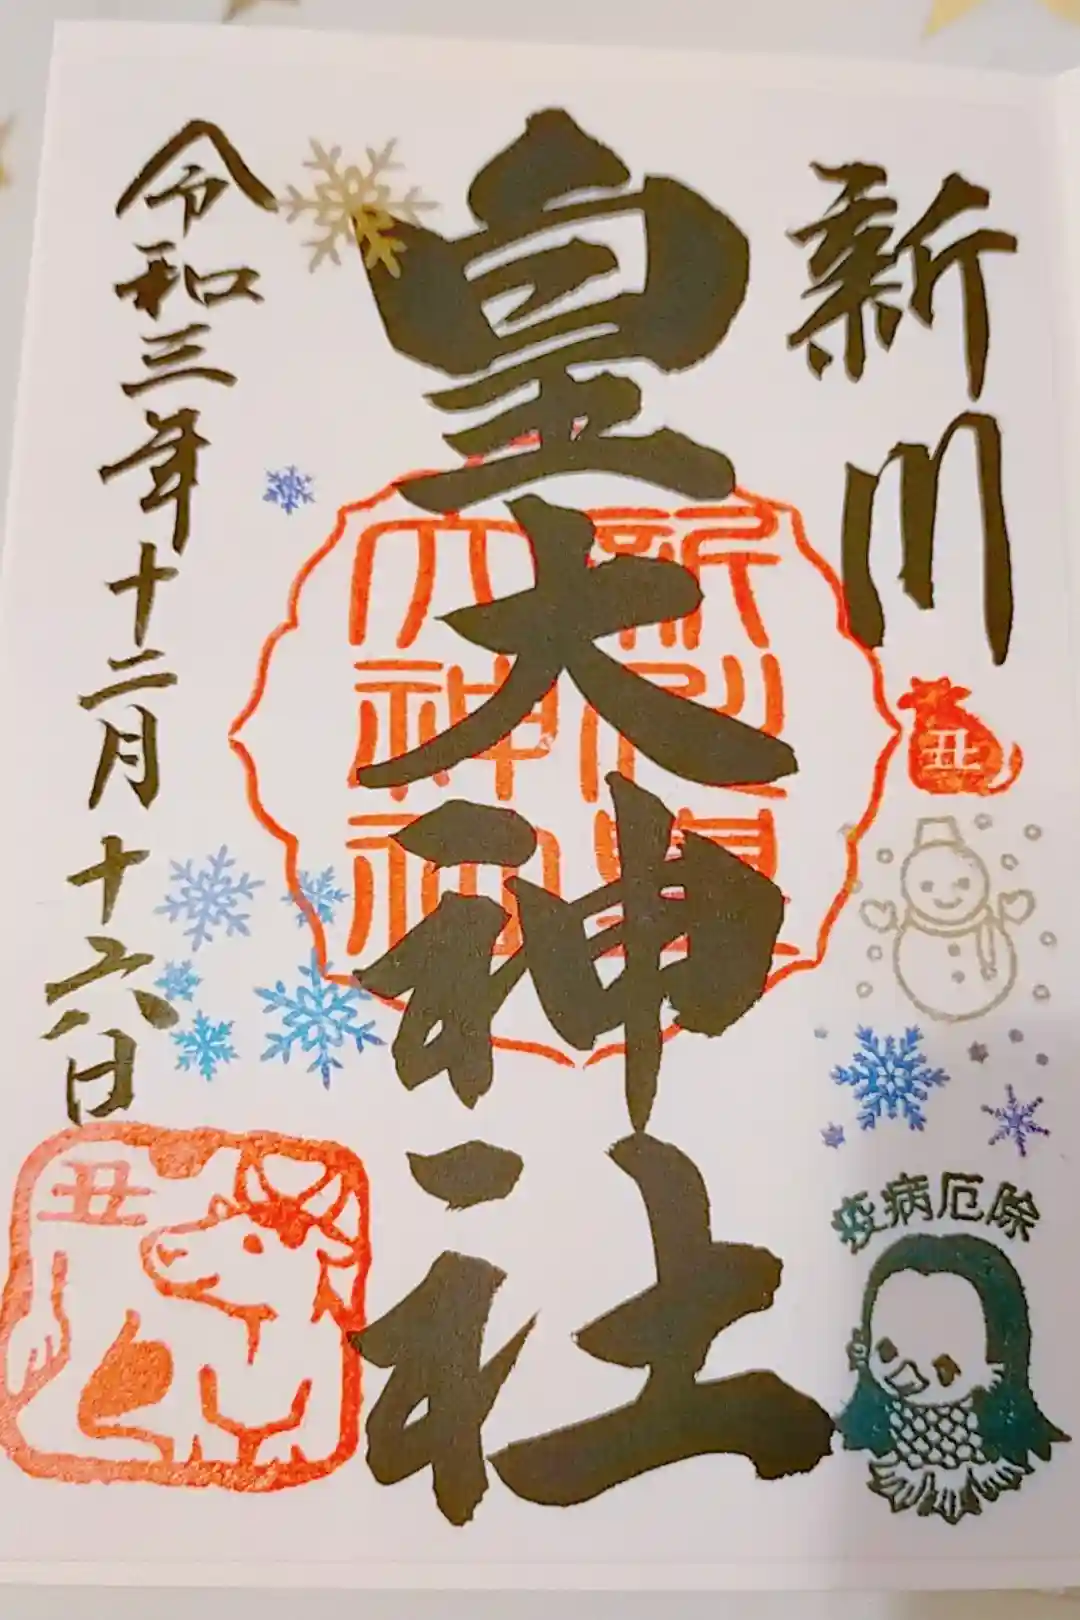 新川
皇大神社
令和三年十二月十六日
新川皇
大神社
丑
疫病厄除
丑